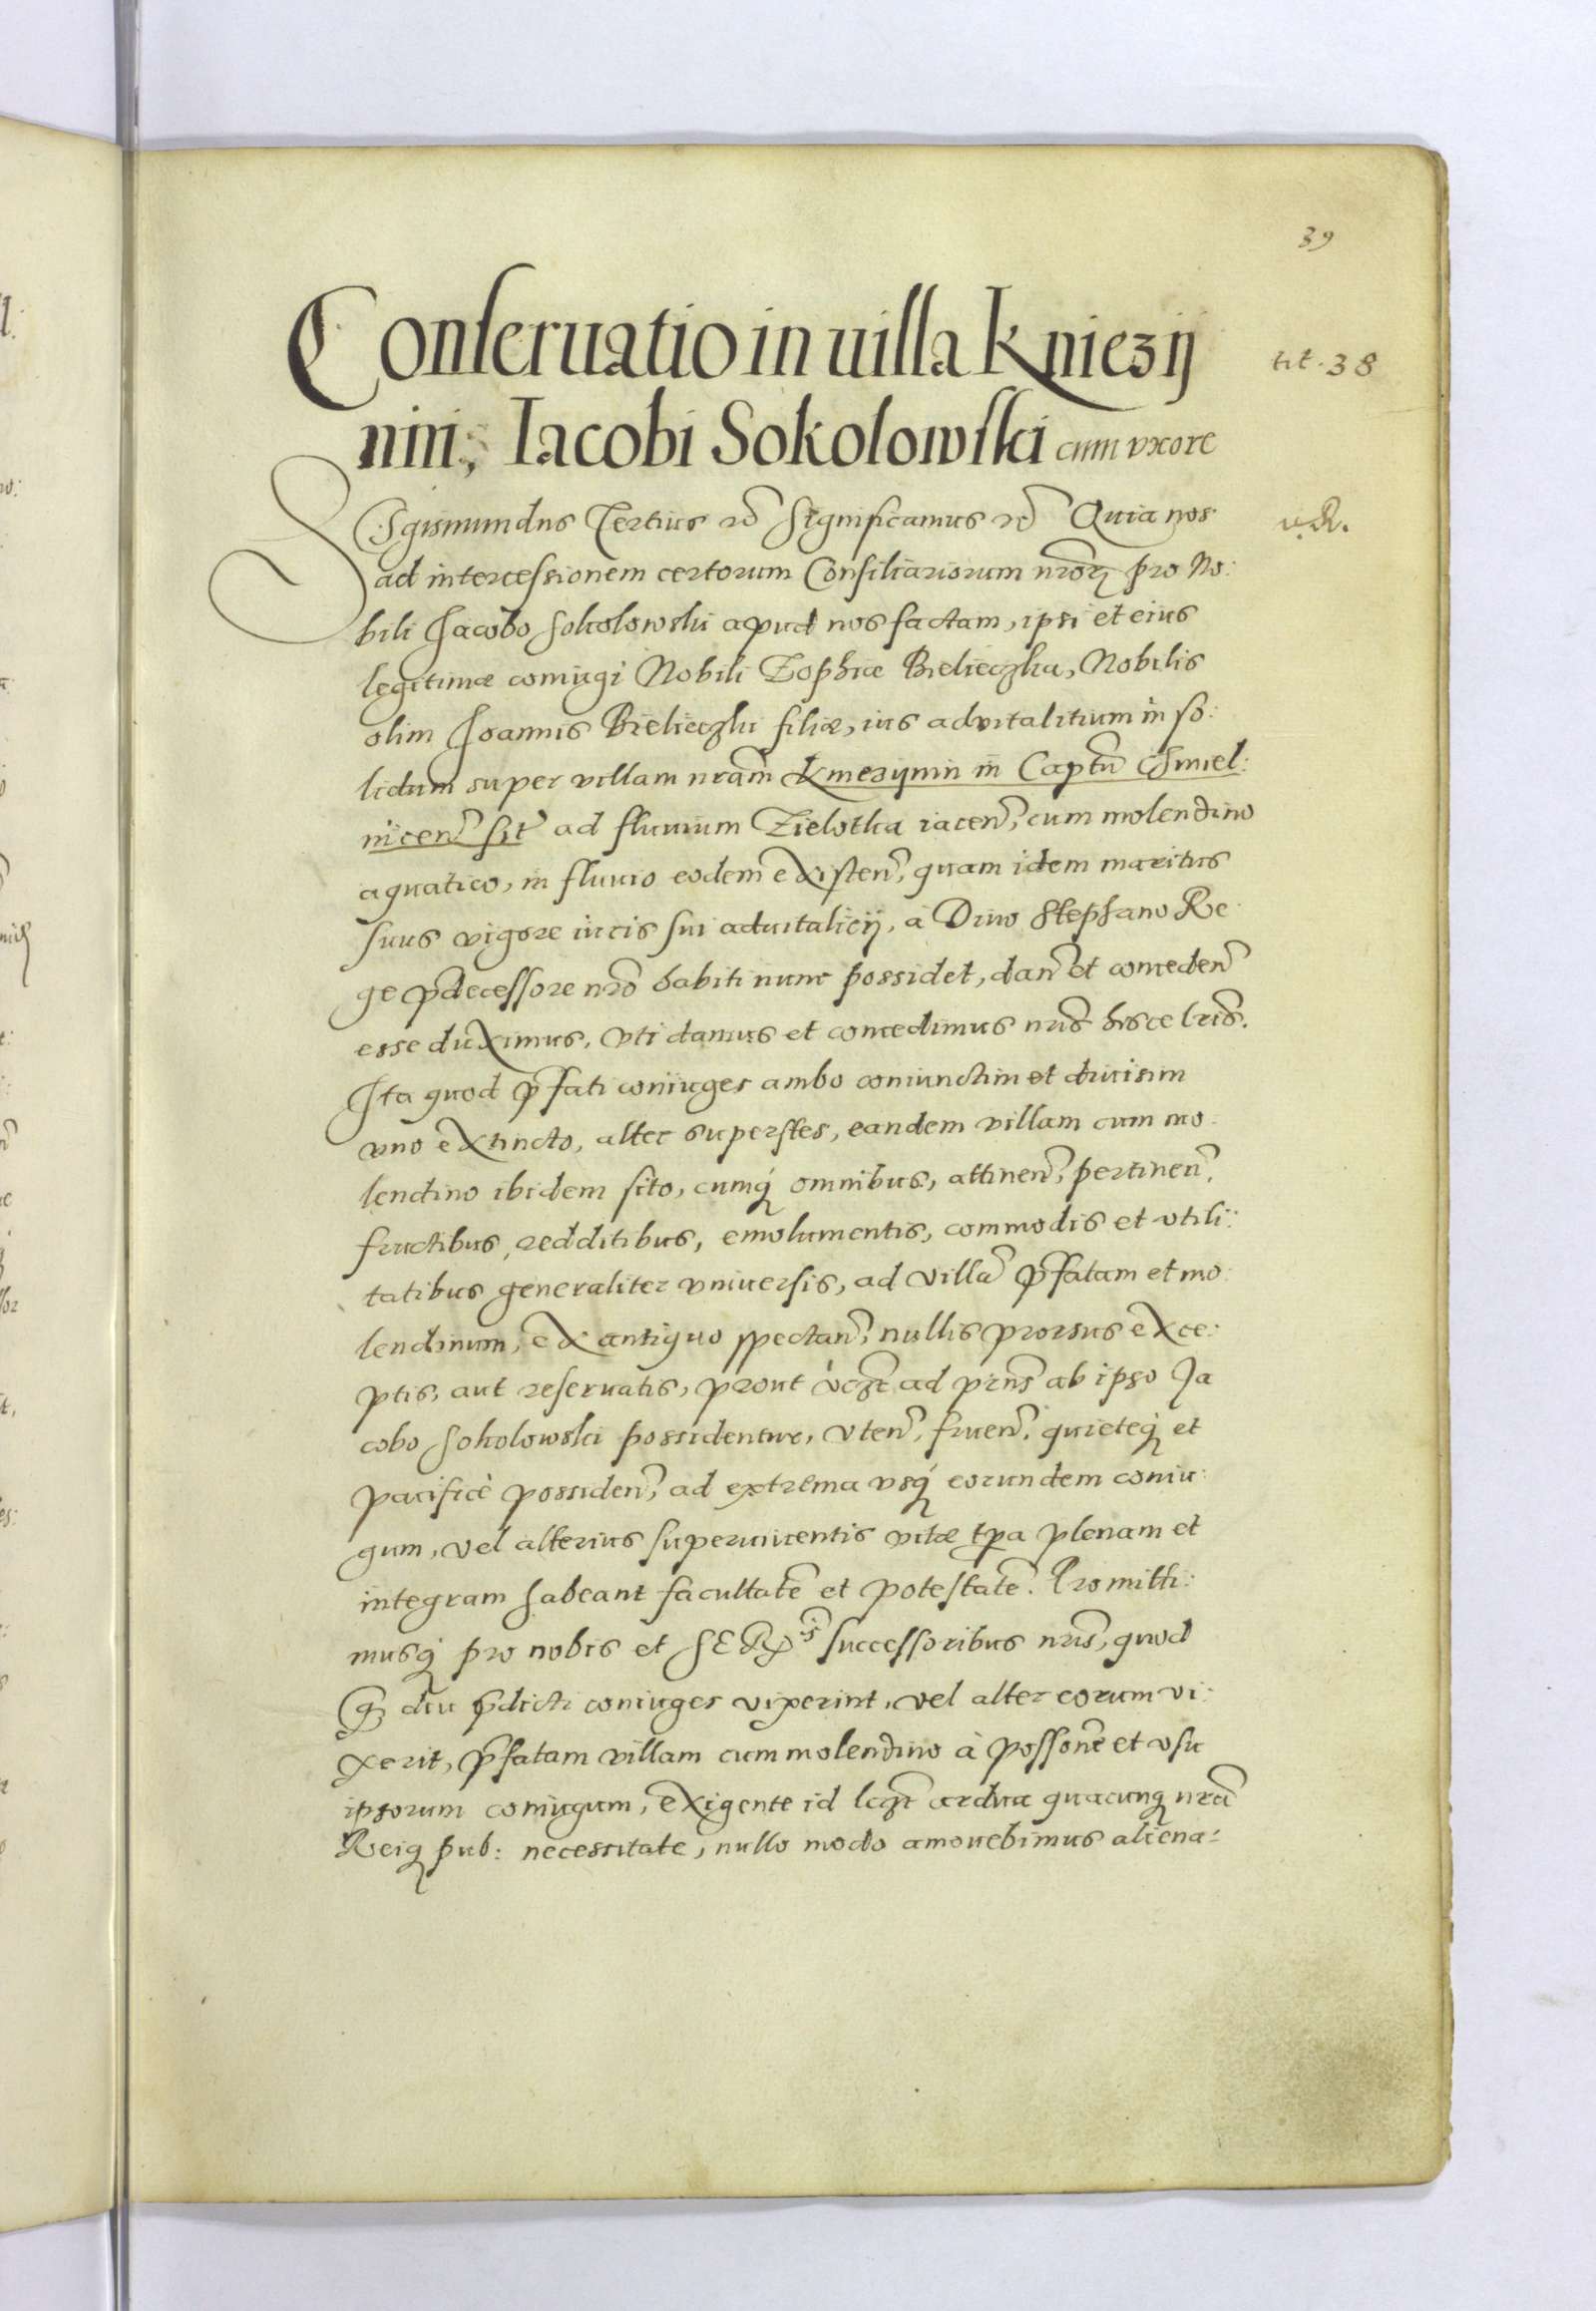 39
Conseruatio in uilla Kniezij
nin, Iacobi Sokolowski cum vxore
tit. 38
Sigismundus Tertius rc̃ Significamus rc̃ Quia nos
v. R.
ad intercessionem certorum Consiliariorum nrõrꝝ pro No:
bili Jacobo Sokolowski apud nos factam, ipsi et eius
legitimæ coniugi Nobili Zophiæ Bielieczka, Nobilis
olim Joannis Bielieczki filiæ, ius aduitalitium in so:
lidum super villam nrãm Kniezynin in Captũ Chmiel:
nicen̄ sit̄ ad fluuium Zielotka iacen̄, cum molendino
aquatico, in fluuio eodem existen̄, quam idem maritus
suus vigore iuris sui aduitalicij, à Diuo Stephano Re
ge p̄decessore nrõ habiti nunc possidet, dan̄ et conceden̄
esse duximus, vti damus et concedimus nris̃ hisce lris̃.
Ita quod p̄fati coniuges ambo coniunctim et diuisim
vno extincto, alter superstes, eandem villam cum mo
lendino ibidem sito, cumqꝫ omnibus, attinen̄, pertinen̄,
fructibus, redditibus, emolumentis, commodis et vtili:
tatibus generaliter vniuersis, ad villã p̄fatam et mo:
lendinum, ex antiquo spectan̄, nullis prorsus exce:
ptis, aut reseruatis, prout ad prñs ab ipso Ja
cobo Sokolowski possidentur, vten̄, fruen̄, quieteqꝫ et
pacificè possiden̄, ad extrema vsqꝫ eorundem coniu:
gum, vel alterius superuiuentis vitæ tp̃a plenam et
integram habeant facultatẽ et potestatẽ. Promitti:
musqꝫ pro nobis et successoribus nris̃, quod
qꝫ diu p̄dicti coniuges vixerint, vel alter eorum vi:
xerit, p̄fatam villam cum molendino à possone̅ et vsu
ipsorum coniugum, exigente id ardua quacunqꝫ nrã
Reiqꝫ pub: necessitate, nullo modo amouebimus aliena: